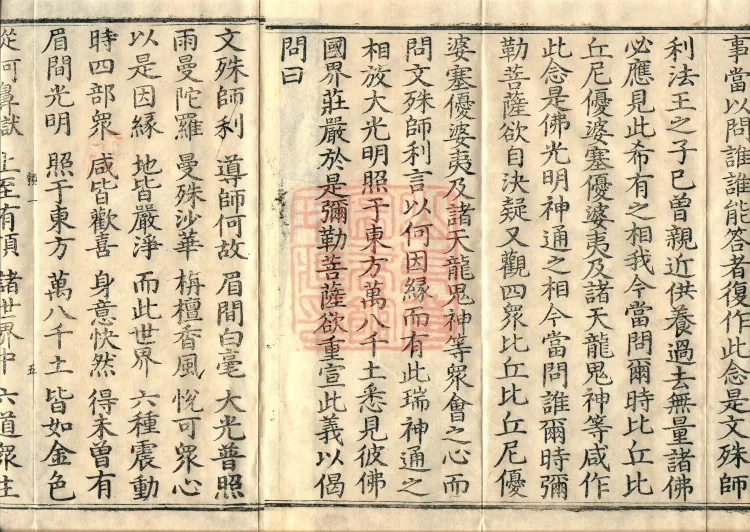 事當以問誰誰能答者復作此念是文殊師
利法王之子已曾親近供養過去無量諸佛
必應見此希有之相我今當問爾時比丘比
丘尼優婆塞優婆夷及諸天龍鬼神等咸作
此念是佛光明神通之相今當問誰爾時彌
勒菩薩欲自決疑又觀四眾比丘比丘尼優
婆塞優婆夷及諸天龍鬼神等眾會之心而
問文殊師利言以何因緣而有此瑞神通之
相放大光明照于東方萬八千土悉見彼佛
國界莊嚴於是彌勒菩薩欲重宣此義以偈
問曰
文殊師利 導師何故 眉間白毫 大光普照
雨曼陀羅 曼殊沙華 栴檀香風 悅可眾心
以是因緣 地皆嚴淨 而此世界 六種震動
時四部眾 咸皆歡喜 身意快然 得未曾有
眉間光明 照于東方 萬八千土 皆如金色
五
從阿鼻獄 上至有頂 諸世界中 六道眾生